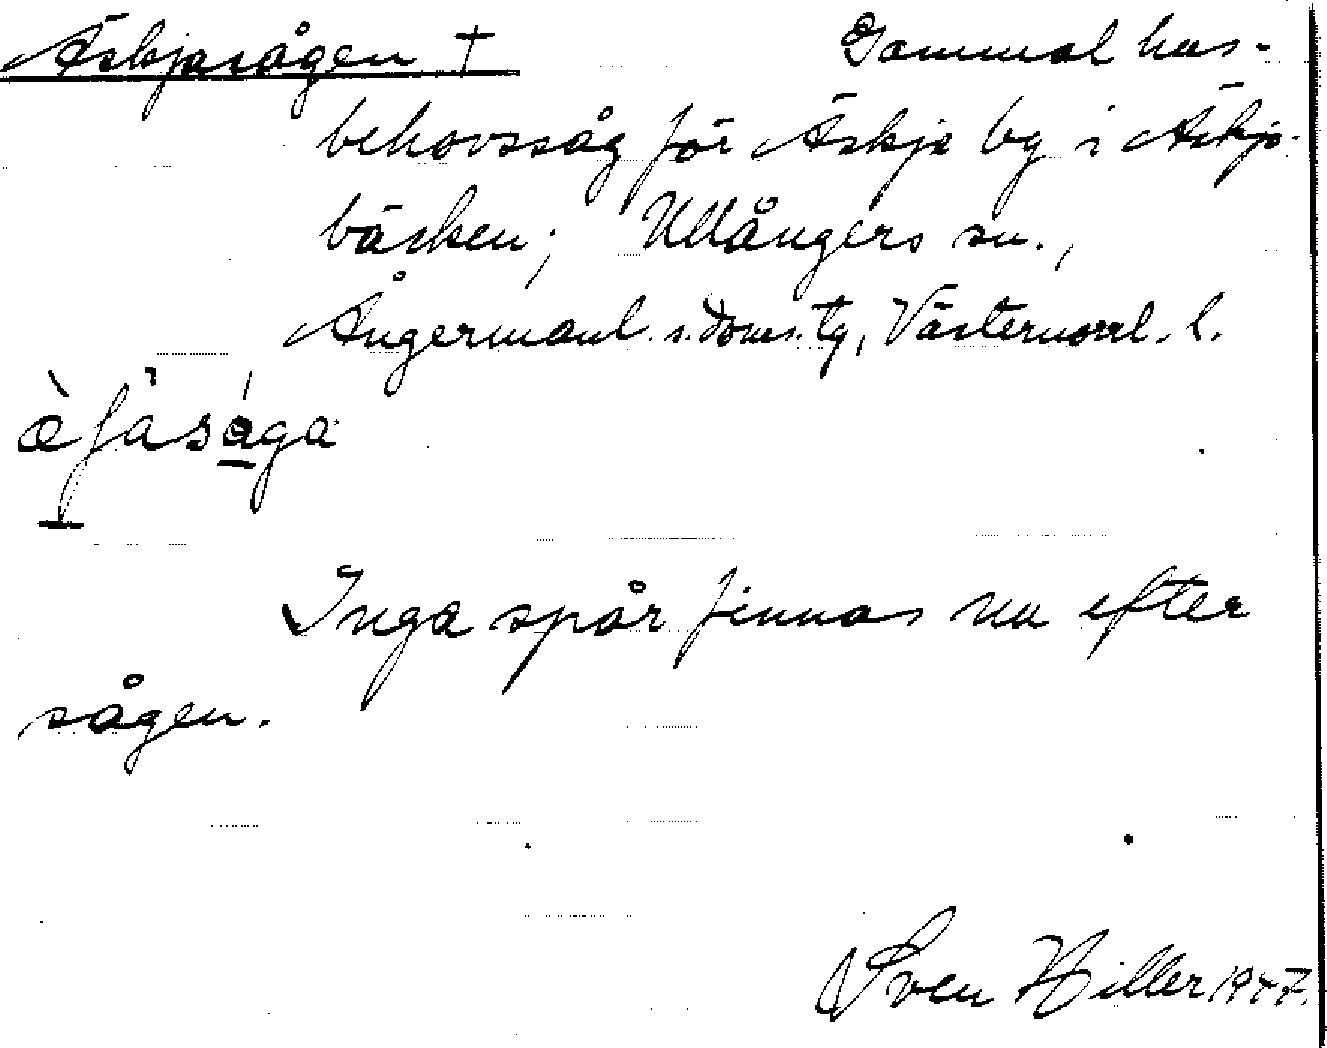 Äskjasågen † Gammal hus-
behovssåg för Äskja by i Äskja-
bäcken; Ullångers sn.,
Ångermanl. s. doms. tg, Västernorrl. l.
Inga spår finnas nu efter
sågen.
Sven Hiller 1947.